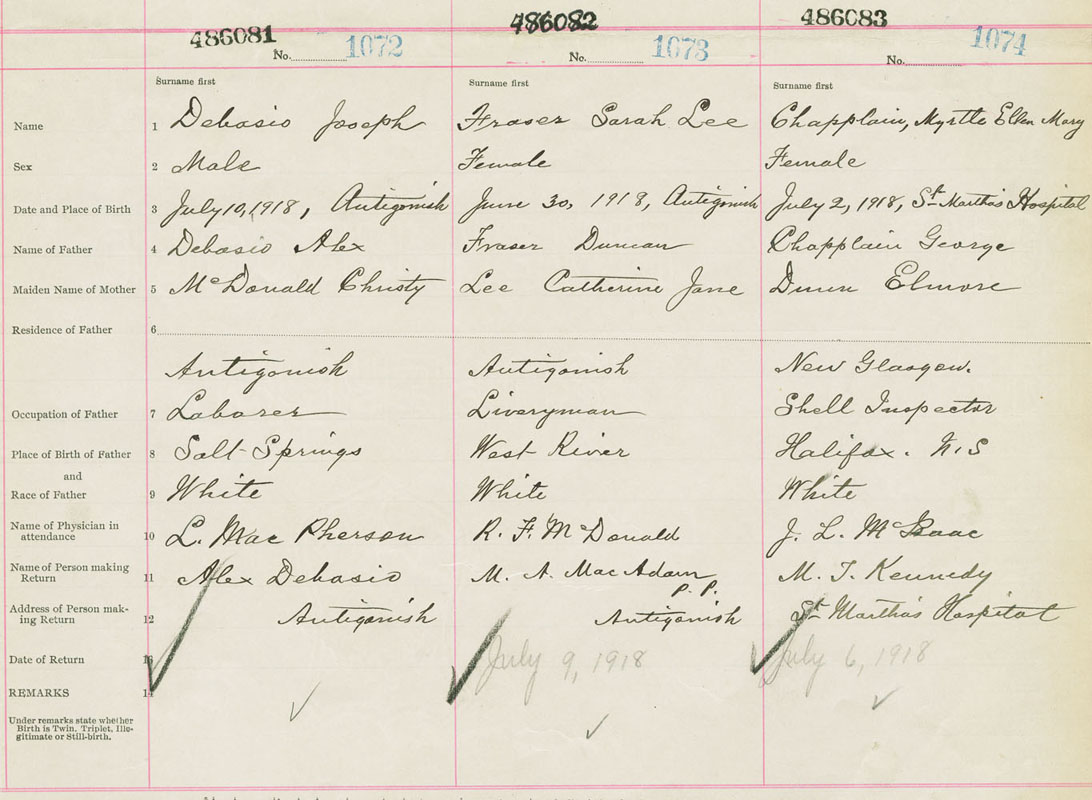 486081 486082 486083
No. 1072 No. 1073 No. 1074
Surname first Surname first Surname first
Name 1 Debasio Joseph Fraser Sarah Lee Chapplain, Myrtle Ellen Mary
Sex 2 Male Female Female
Date and Place of Birth 3 July 10, 1918, Antigonish June 30, 1918, Antigonish July 2, 1918, St Martha's Hospital
Name of Father 4 Debasio Alex Fraser Duncan Chapplain George
Maiden Name of Mother 5 McDonald Christy Lee Catherine Jane Dunn Elmore
Residence of Father 6
Antigonish Antigonish New Glasgow.
Occupation of Father 7 Laborer Liveryman Shell Inspector
Place of Birth of Father 8 Salt Springs West River Halifax. N.S
and
Race of Father 9 White White White
Name of Physician in
attendance 10 L. MacPherson R. F. McDonald J. L. McIsaac
Name of Person making
Return 11 Alex Debasio M. A. MacAdam M. T. Kennedy
P. P.
Address of Person mak-
ing Return 12 Antigonish Antigonish St Martha's Hospital
Date of Return 13 July 9, 1918 July 6, 1918
REMARKS 14
Under remarks state whether
Birth is Twin, Triplet, Ille-
gitimate or Still-birth.